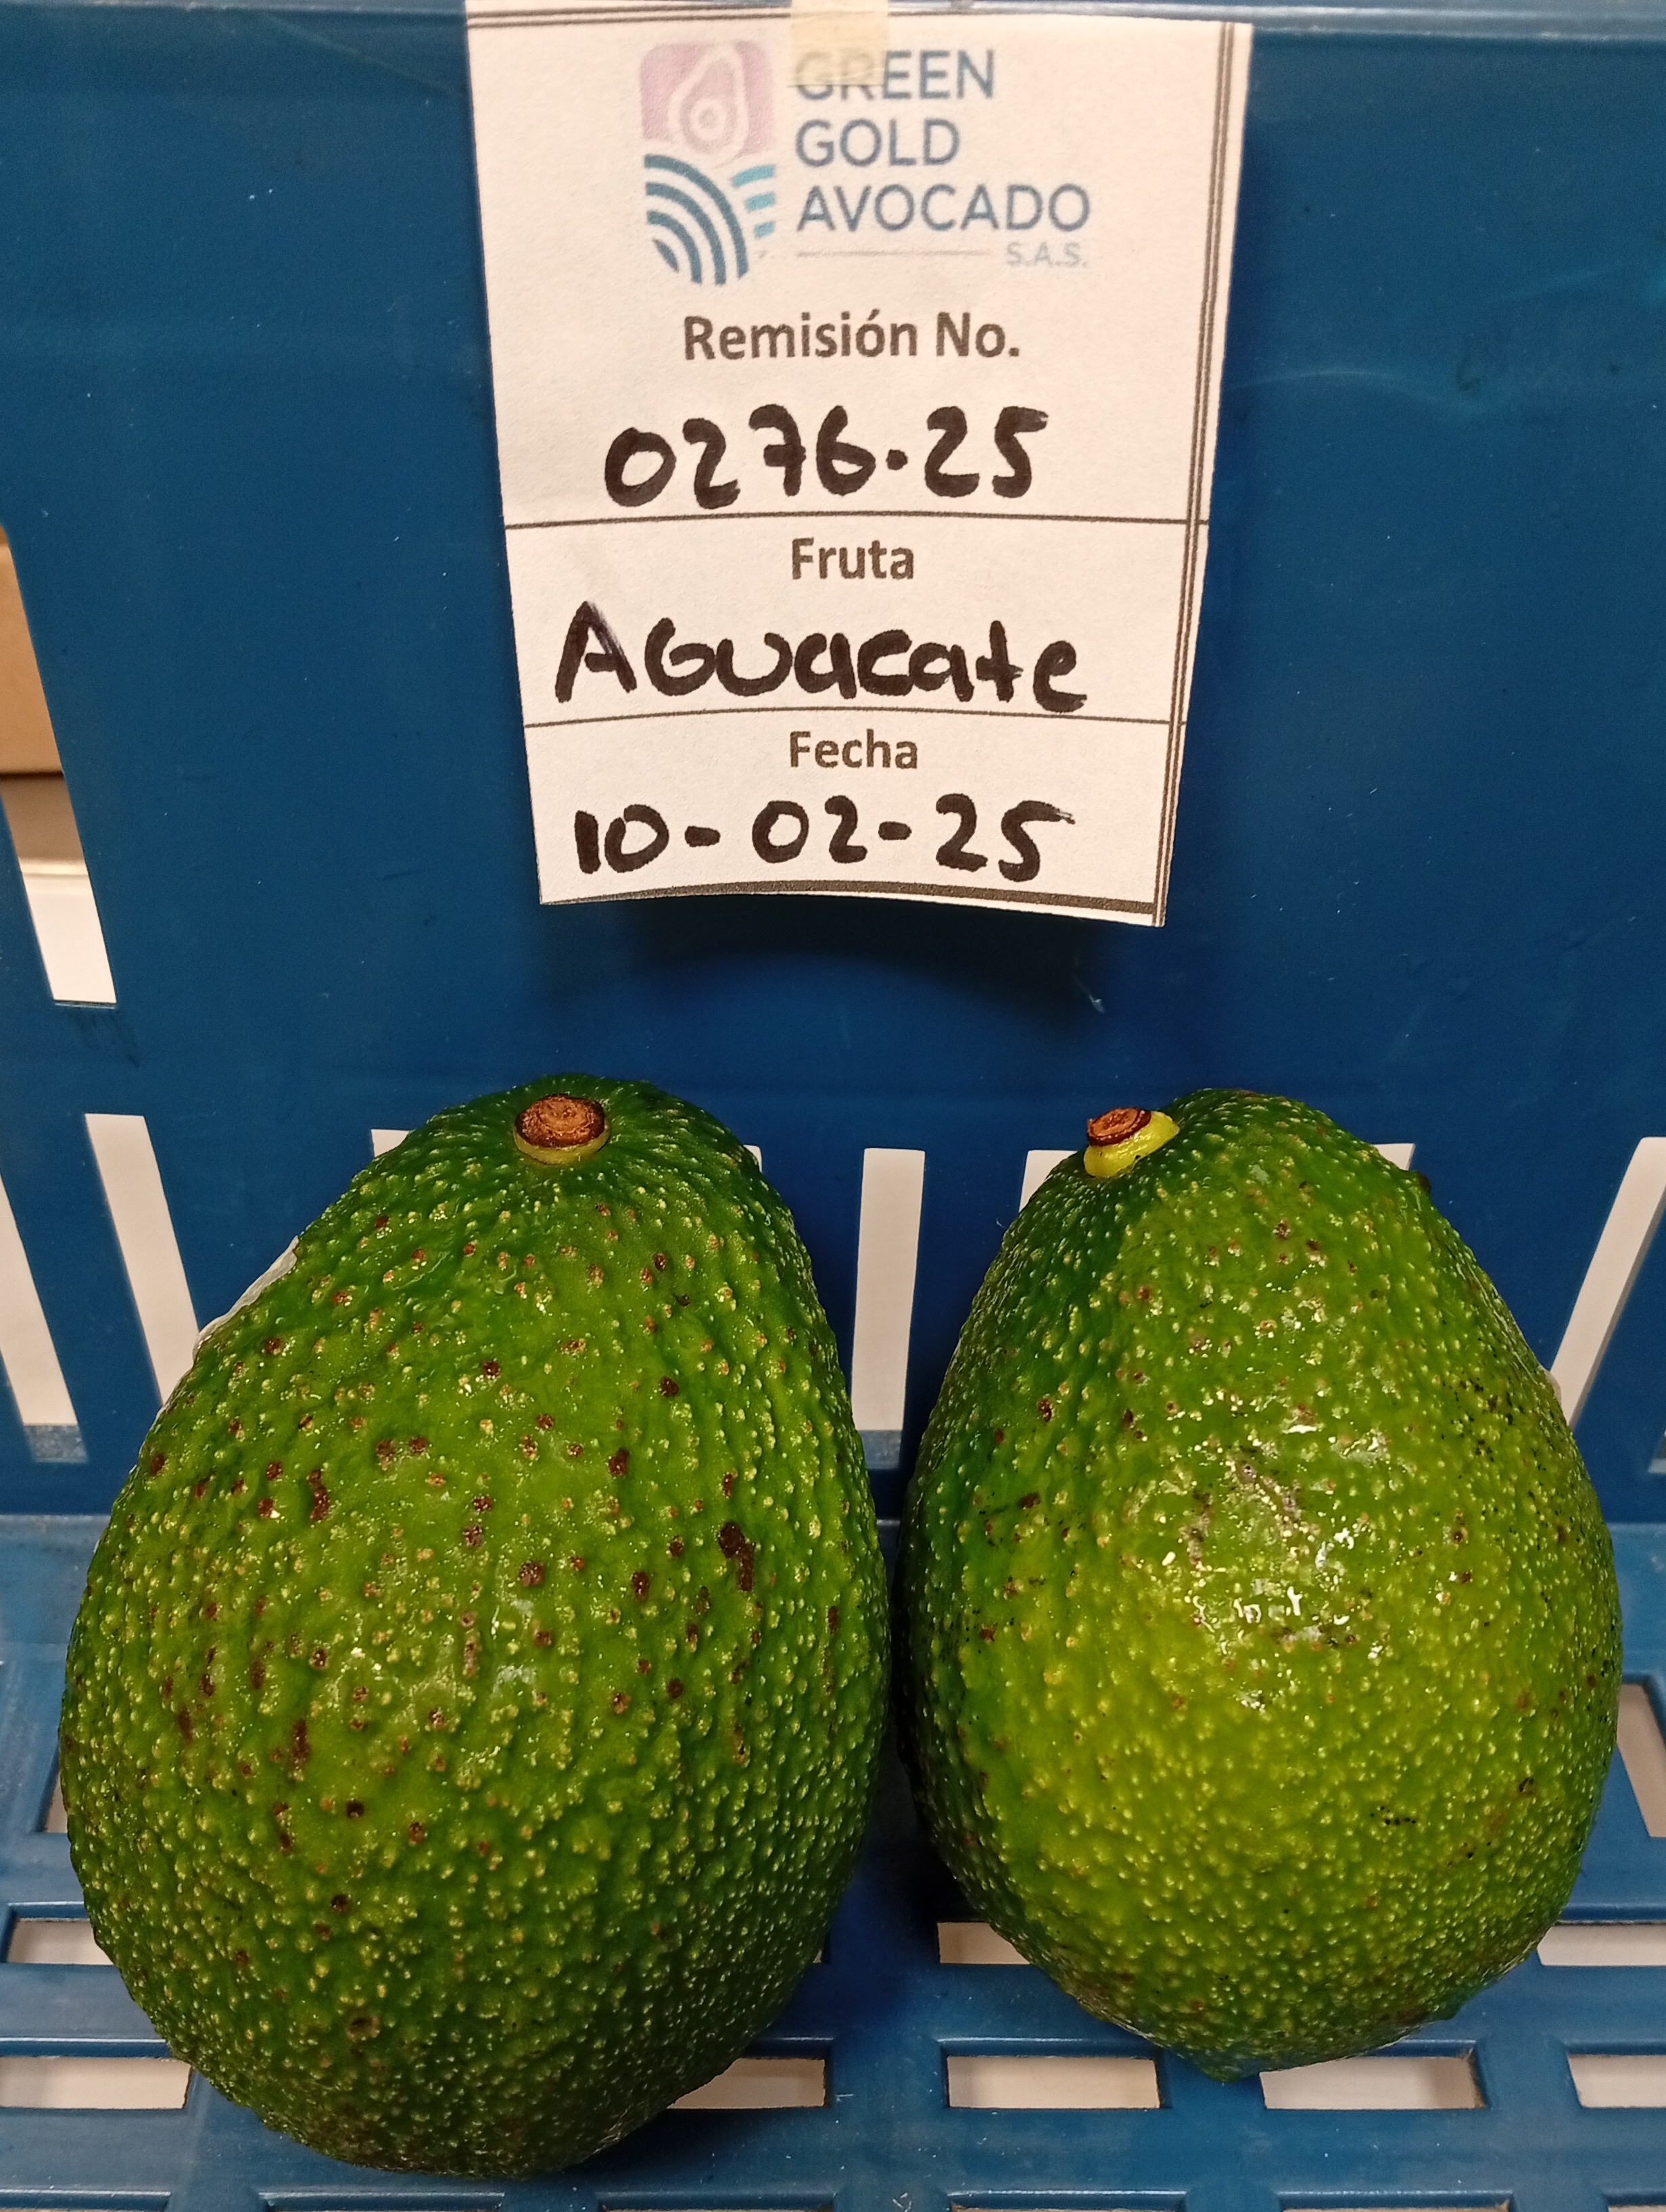 GREEN
GOLD
AVOCADO
S.A.S.
Remisión No.
0276.25
Fruta
AGuacate
Fecha
10-02-25